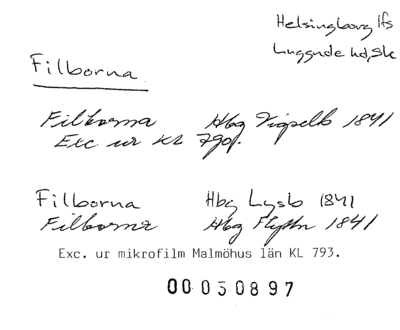 Helsingborg lfs
Luggude hd, Sk
Filborna
Filborna Hbg Vigselb 1841
Exc. ur KL 790.
Filborna Hbg Lysb 1841
Filborna Hbg Flyttn 1841
Exc. ur mikrofilm Malmöhus län KL 793.
00030897